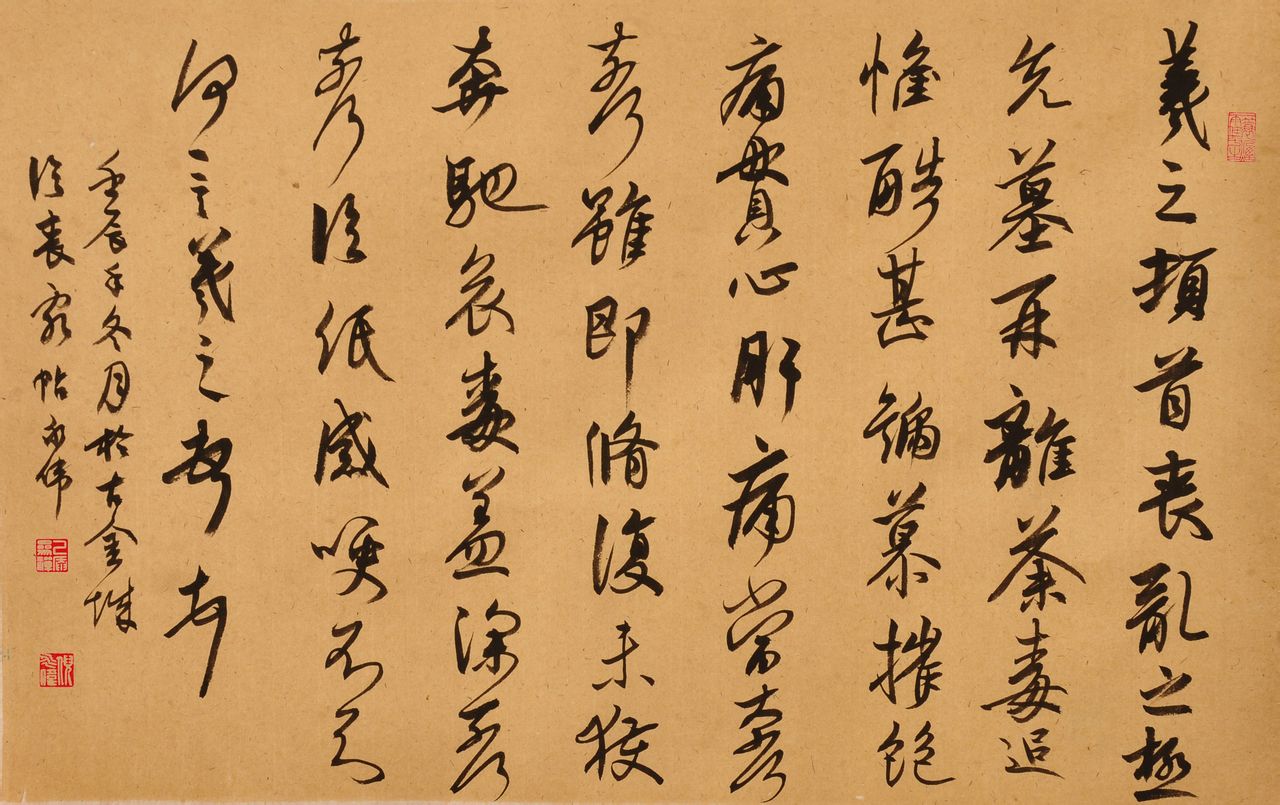 羲之頓首喪亂之極
先墓再離荼毒追
惟酷甚號慕摧絶
痛貫心肝痛當奈何
奈何雖即脩復未獲
奔馳哀毒益深奈何
奈何臨紙感哽不知
何言羲之頓首頓首
壬辰年冬月於古金城
臨喪亂帖 伟